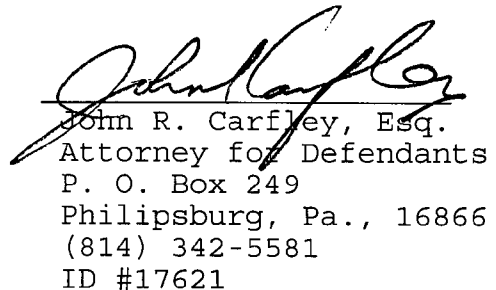 John R. Carfley
John R. Carfley, Esq.
Attorney for Defendants
P. O. Box 249
Philipsburg, Pa., 16866
(814) 342-5581
ID #17621